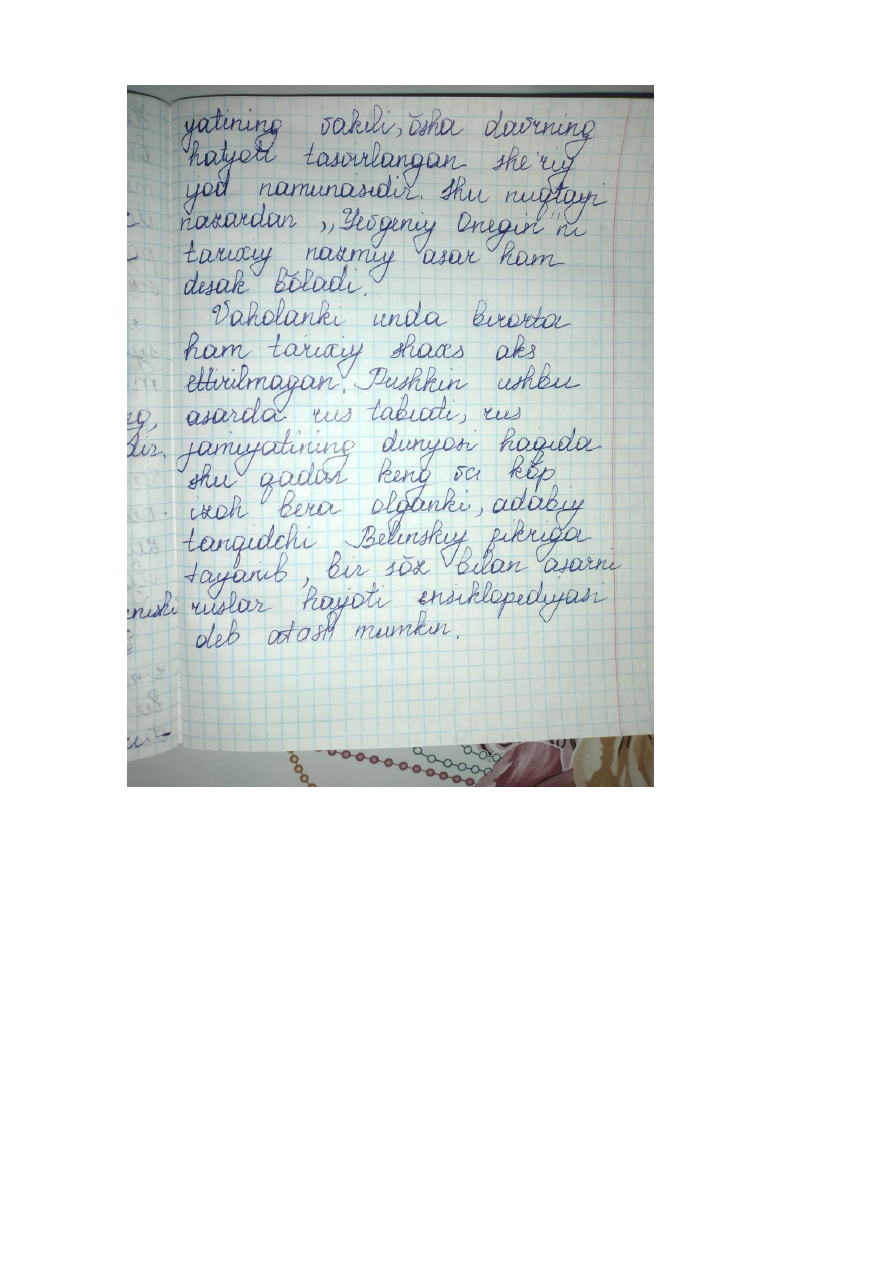 yatining vakili, õsha davrning
hatyoti tasvirlangan she'riy
ijod namunasidir. Shu nuqtayi
nazardan ,,Yevgeniy Onegin"ni
tarixiy nazmiy asar ham
desak bõladi.
Vaholanki unda birorta
ham tarixiy shaxs aks
ettirilmagan. Pushkin ushbu
asarda rus tabiati, rus
jamiyatining dunyosi haqida
shu qadar keng va kõp
izoh bera olganki, adabiy
tanqidchi Belinskiy fikriga
tayanib, bir sõz bilan asarni
ruslar hayoti ensiklopediyasi
deb atash mumkin.